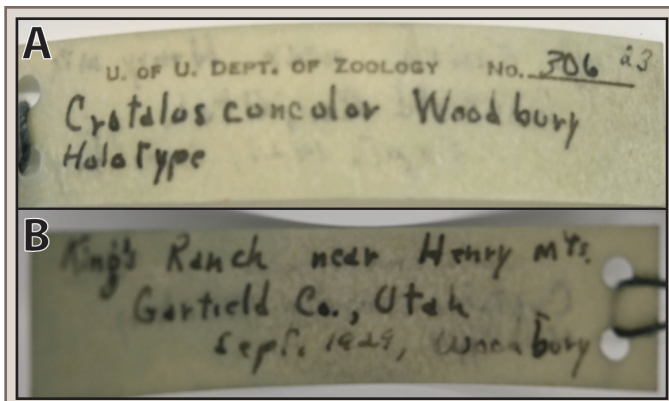 A
U. OF U. DEPT. OF ZOOLOGY No. 306 23
Crotalus concolor Woodbury
Holotype
B
King's Ranch near Henry Mts.
Garfield Co., Utah
Sept. 1929, Woodbury